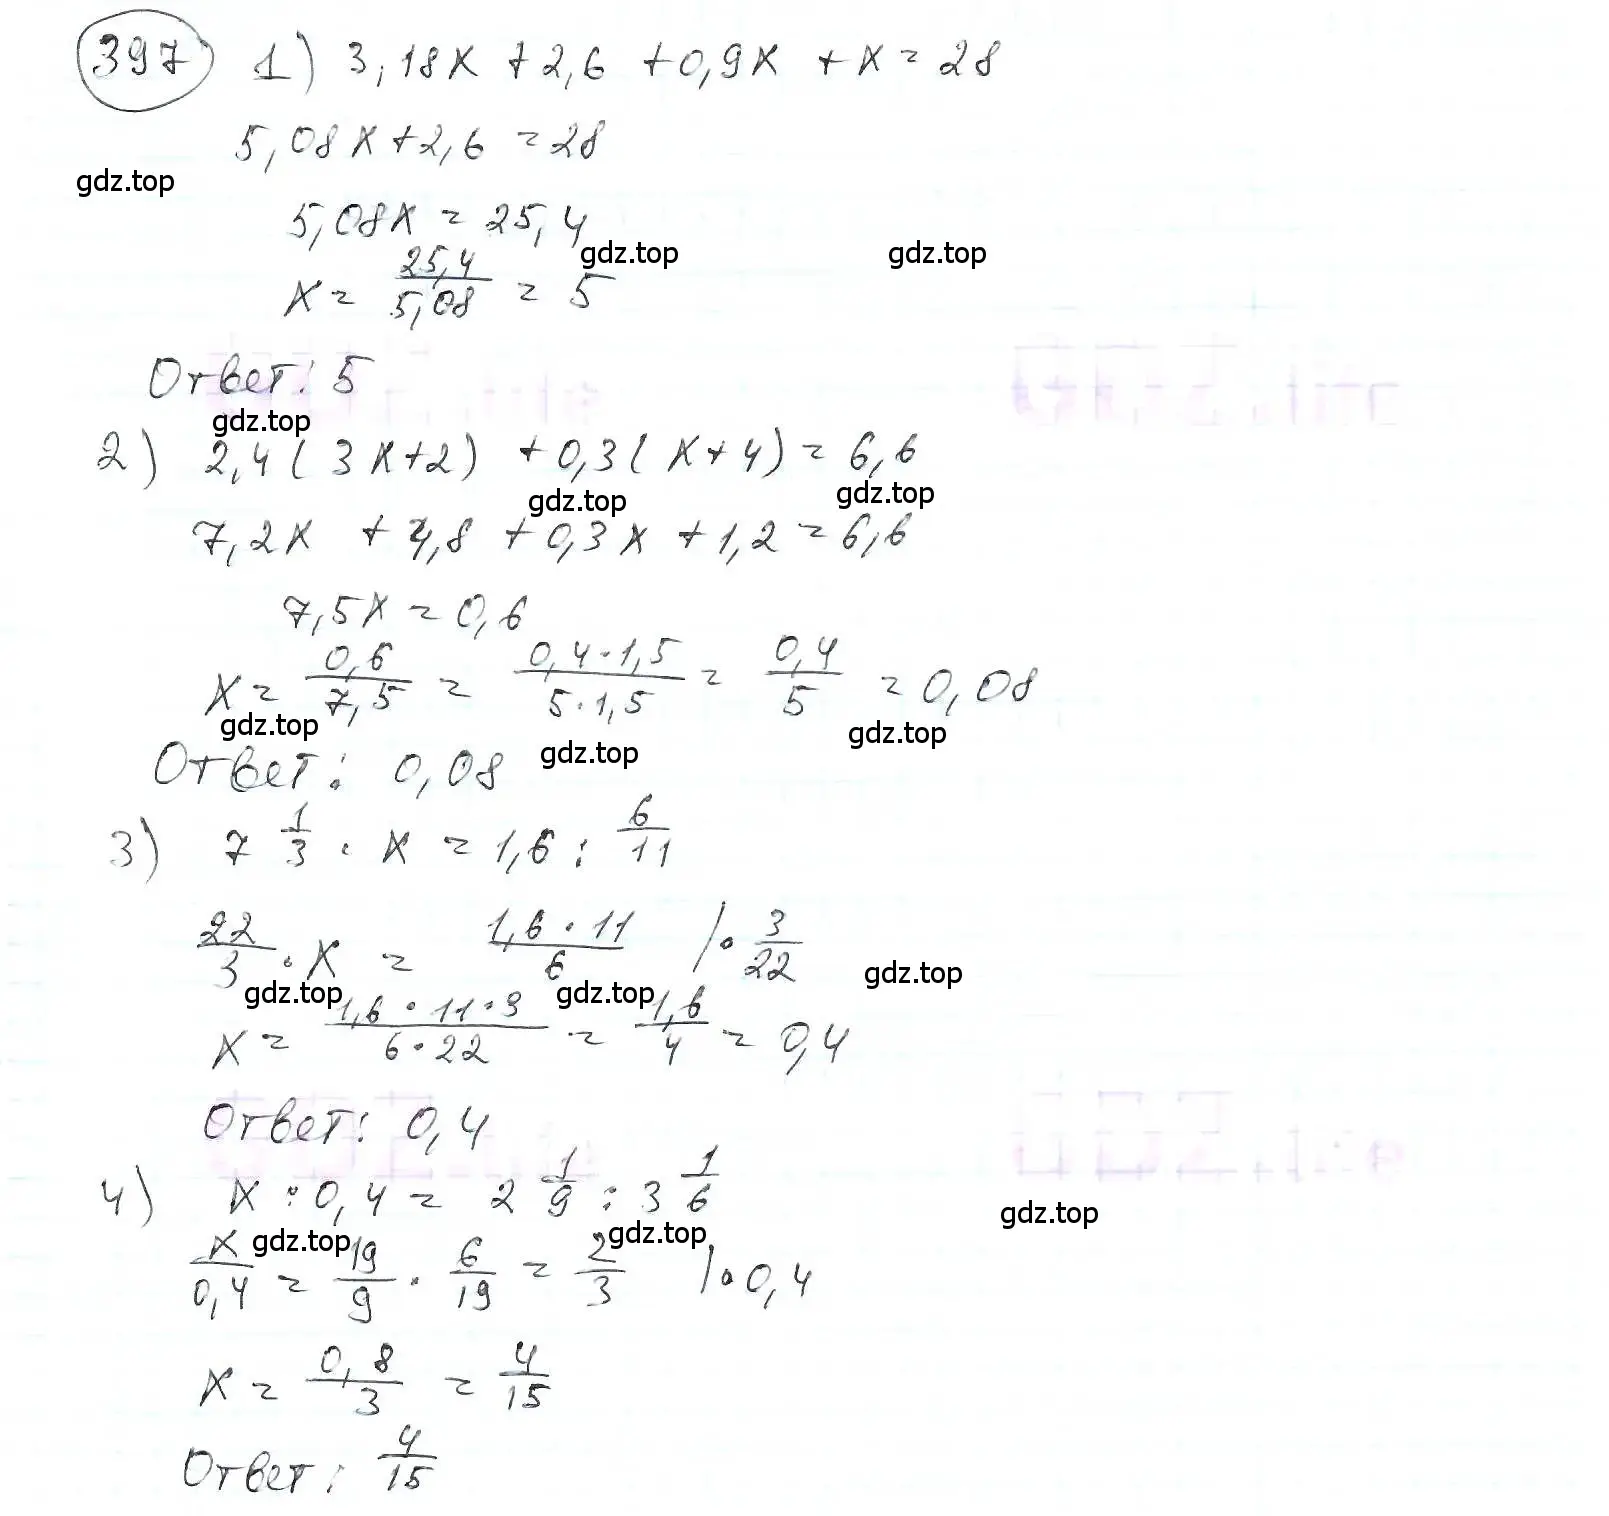 397 1) 3,18x + 2,6 + 0,9x + x = 28
5,08x + 2,6 = 28
gdz.top
5,08x = 25,4
gdz.top gdz.top
x = 25,4/5,08 = 5
Ответ: 5
gdz.top
2) 2,4(3x+2) + 0,3(x+4) = 6,6
gdz.top gdz.top
7,2x + 4,8 + 0,3x + 1,2 = 6,6
7,5x = 0,6
x = 0,6/7,5 = 0,4·1,5/5·1,5 = 0,4/5 = 0,08
gdz.top gdz.top gdz.top
Ответ: 0,08
3) 7 1/3 · x = 1,6 : 6/11
22/3 · x = 1,6·11/6 |· 3/22
gdz.top gdz.top gdz.top
x = 1,6·11·3/6·22 = 1,6/4 = 0,4
Ответ: 0,4
4) x : 0,4 = 2 1/9 : 3 1/6
gdz.top gdz.top gdz.top
x/0,4 = 19/9 · 6/19 = 2/3 |· 0,4
x = 0,8/3 = 4/15
Ответ: 4/15